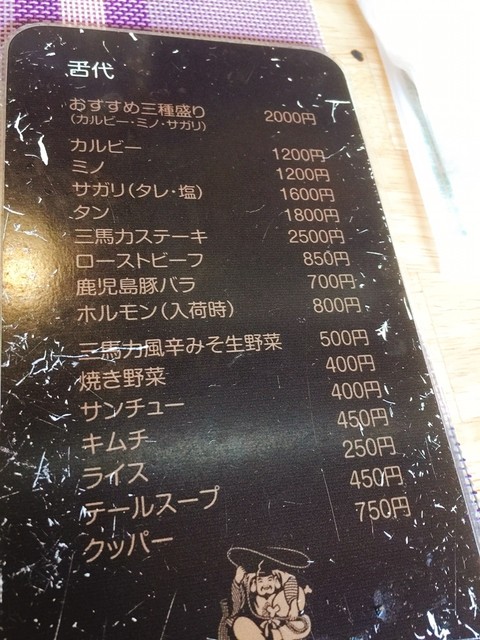 舌代
おすすめ三種盛り 2000円
(カルビー・ミノ・サガリ)
カルビー 1200円
ミノ 1200円
サガリ(タレ・塩) 1600円
タン 1800円
三馬力ステーキ 2500円
ローストビーフ 850円
鹿児島豚バラ 700円
ホルモン(入荷時) 800円
三馬力風辛みそ生野菜 500円
焼き野菜 400円
サンチュー 400円
キムチ 450円
ライス 250円
テールスープ 450円
クッパー 750円